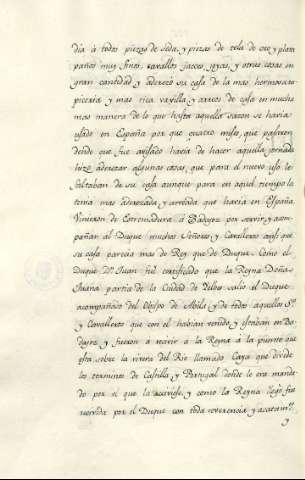 dia à todos piezas de Seda, y piezas de tela de oro y plata
paños muy finos, cavallos jaeces, joyas, y otras cosas en
gran cantidad y aderezó su casa de la mas hermosa ta-
piceria y mas rica vaxilla y arreos de casa en mucha
mas manera de lo que hasta aquella sazon se havia
usado en España por que quatro meses, que pasaron
desde que fue avisado havia de hacer aquella jornada
hizo aderezar algunas cosas, que para el nuevo uso le
faltaban de su casa aunque para en aquel tiempo la
tenia mas aderezada, y arreada que havia en España
Vinieron de Estremadura à Badajoz por servir, y acom-
pañar al Duque muchos Señores y Cavalleros assi que
su casa parecia mas de Rey que de Duque. Como el
Duque Dn. Juan fué certificado que la Reyna Doña
Juana partia de la Ciudad de Yelbes salio el Duque
acompañado del Obispo de Abila y de todos aquellos Sres.
y Cavalleros que con el habian venido, y estaban en Ba-
dajoz y fueron à recivir à la Reyna à la puente que
esta sobre la rivera del Rio llamado Caya que divide
los terminos de Castilla y Portugal donde le era manda-
do por el que la recivise, y como la Reyna llegó fué
recivida por el Duque con toda reverencia y acatamto.
y